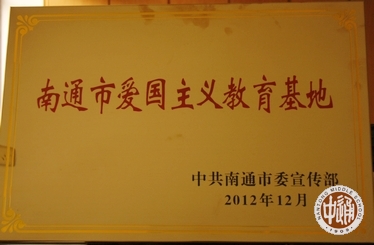 南通市爱国主义教育基地
中共南通市委宣传部
2012年12月
NANTONG MIDDLE SCHOOL
1909